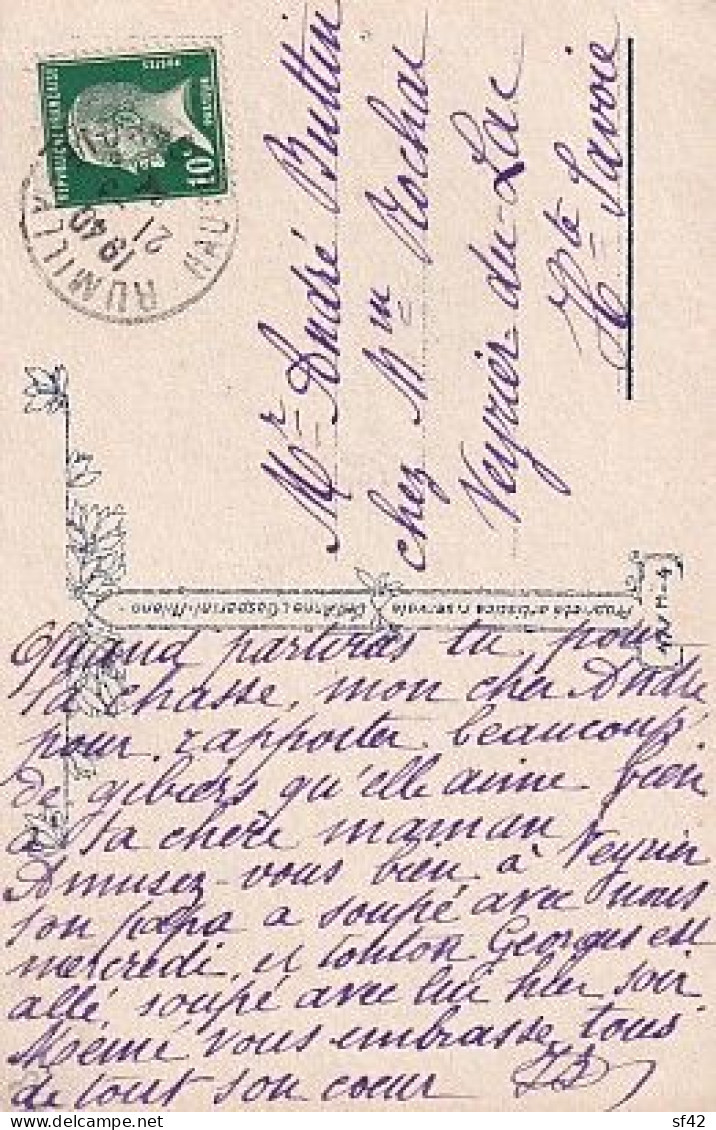 RÉPUBLIQUE FRANÇAISE
POSTES
PASTEUR
10c
RUMILLY
HAU
1940
21
Mr André Buttin
chez Mme Rochat
Veyrier-du-Lac
Hte Savoie
Proprietà artistica riservata
Dell'Anna & Gasparini-Milano
Quand partiras tu, pour
la chasse, mon cher André
pour rapporter beaucoup
de gibiers qu'elle aime bien
ta chère maman
Amusez-vous bien à Veyrier
ton papa a soupé avec nous
mercredi, et tonton Georges est
allé soupé avec lui hier soir
Mémé vous embrasse tous
de tout son coeur
sf42